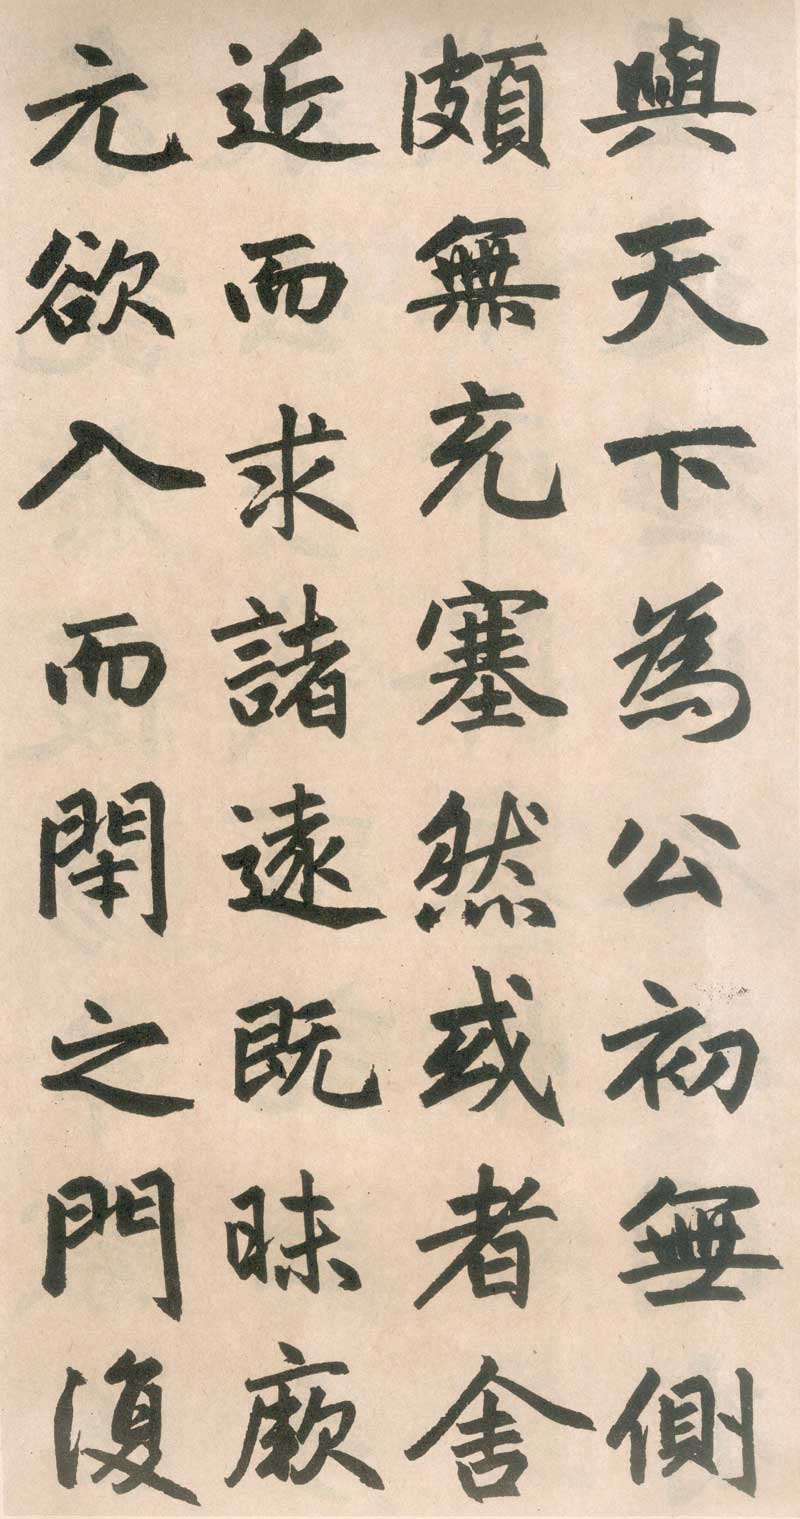 與天下為公初無側
頗無充塞然或者舍
近而求諸遠既昧厥
元欲入而閇之門復